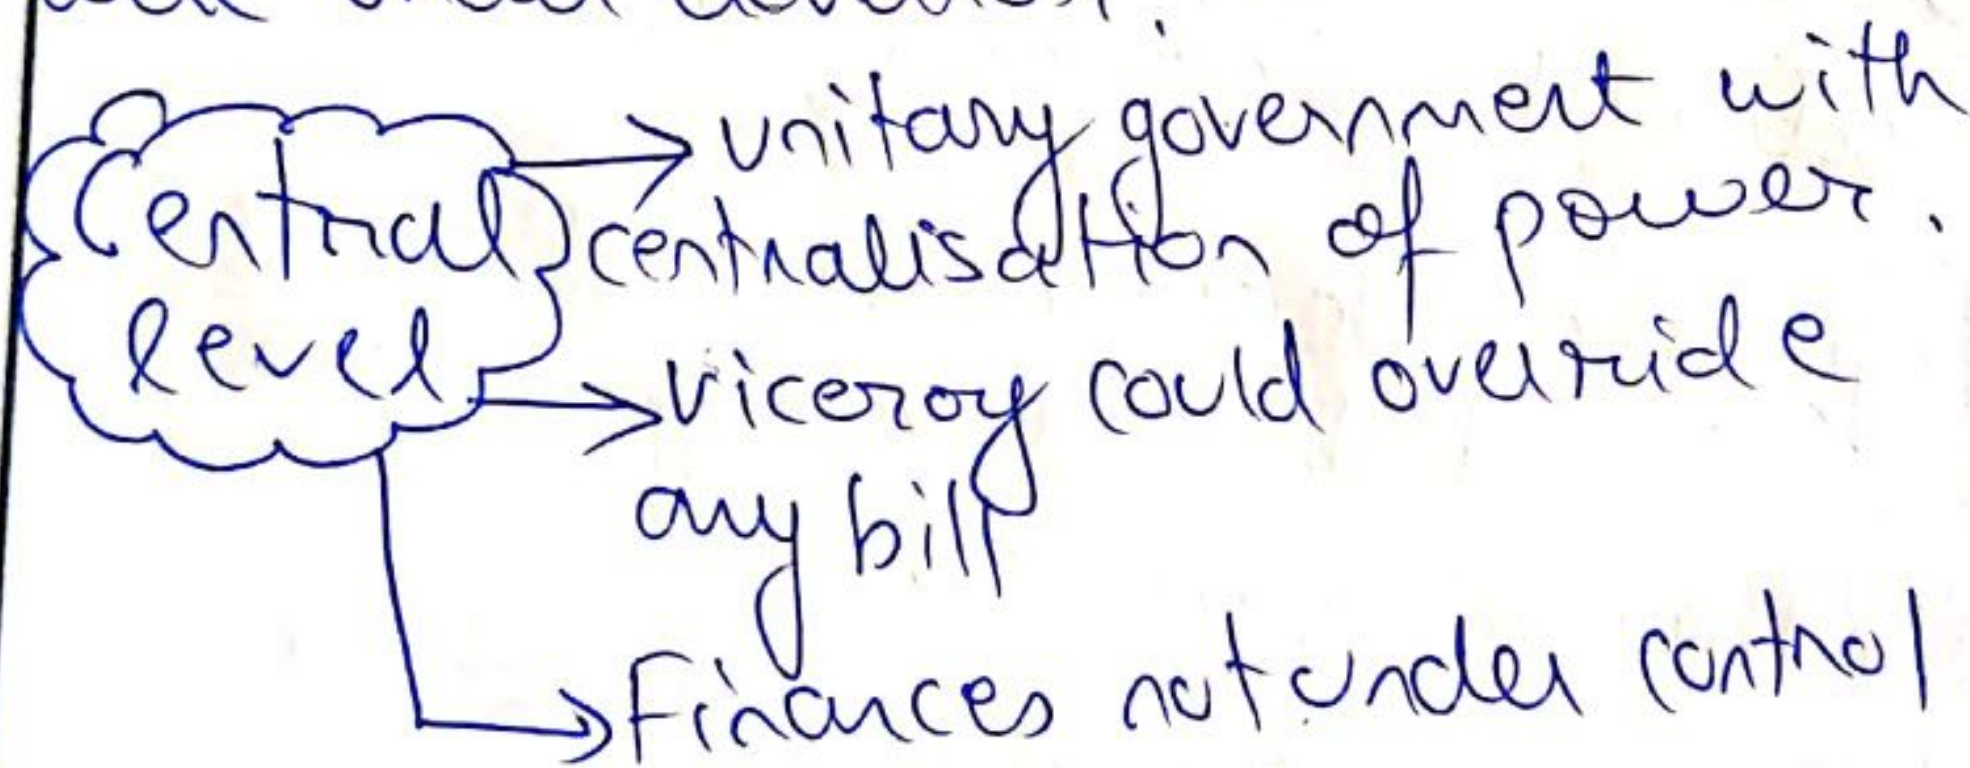 Central
level
unitary government with
centralisation of power.
viceroy could override
any bill
Finances not under control